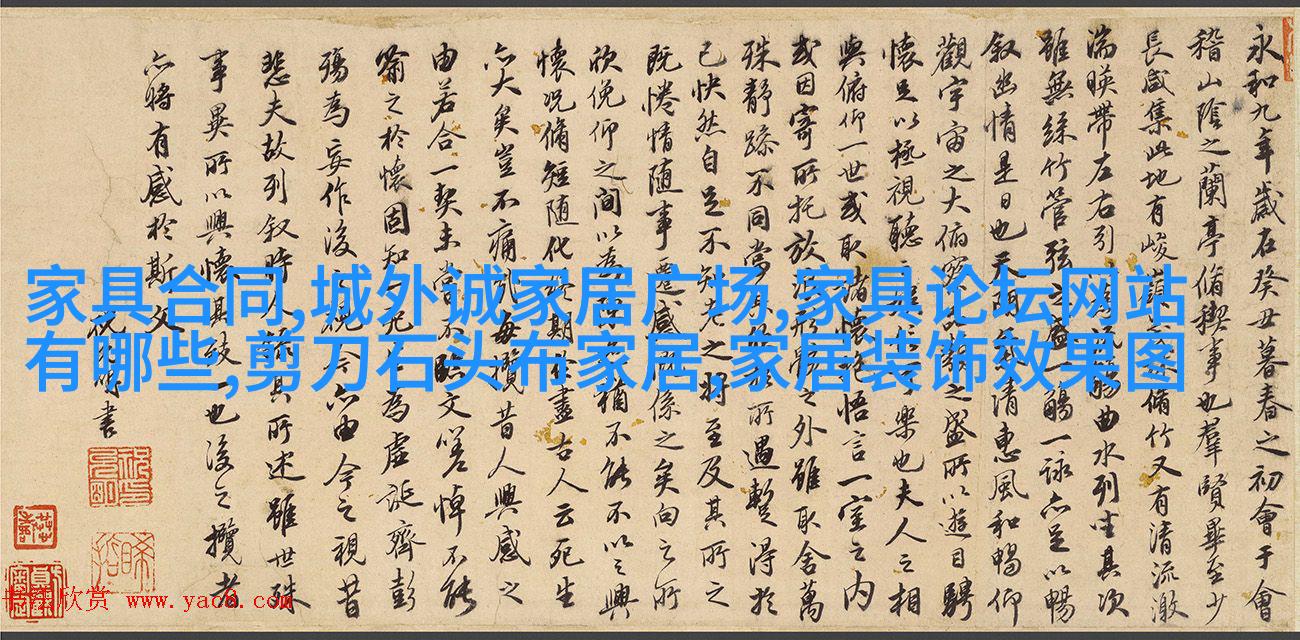 家具合同,城外诚家居广场,家具论坛网站
有哪些,剪刀石头布家居,家居装饰效果图
永和九年歲在癸丑暮春之初會于會
稽山陰之蘭亭脩稧事也羣賢畢至少
長咸集此地有峻領茂林脩竹又有清流激
湍暎帶左右引以為流觴曲水列坐其次
雖無絲竹管弦之盛一觴一詠亦足以暢
叙幽情是日也天朗氣清惠風和暢仰
觀宇宙之大俯察品類之盛所以遊目騁
懷足以極視聽之娛信可樂也夫人之相
與俯仰一世或取諸懷抱悟言一室之內
或因寄所托放浪形骸之外雖取舍萬
殊靜躁不同當其欣於所遇暫得於
己快然自足不知老之將至及其所之
既惓情随事遷感慨係之矣向之所
欣俛仰之間以為陳迹猶不能不以之興
懷況脩短随化終期於盡古人云死生
亦大矣豈不痛哉每攬昔人興感之
由若合一契未嘗不臨文嗟悼不能
喻之於懷固知一死生為虛誕齊彭
殤為妄作後之視今亦由今之視昔
悲夫故列叙時人録其所述雖世殊
事異所以興懷其致一也後之攬者
亦將有感於斯文
祝允明書
书法欣赏 www.yac8.com